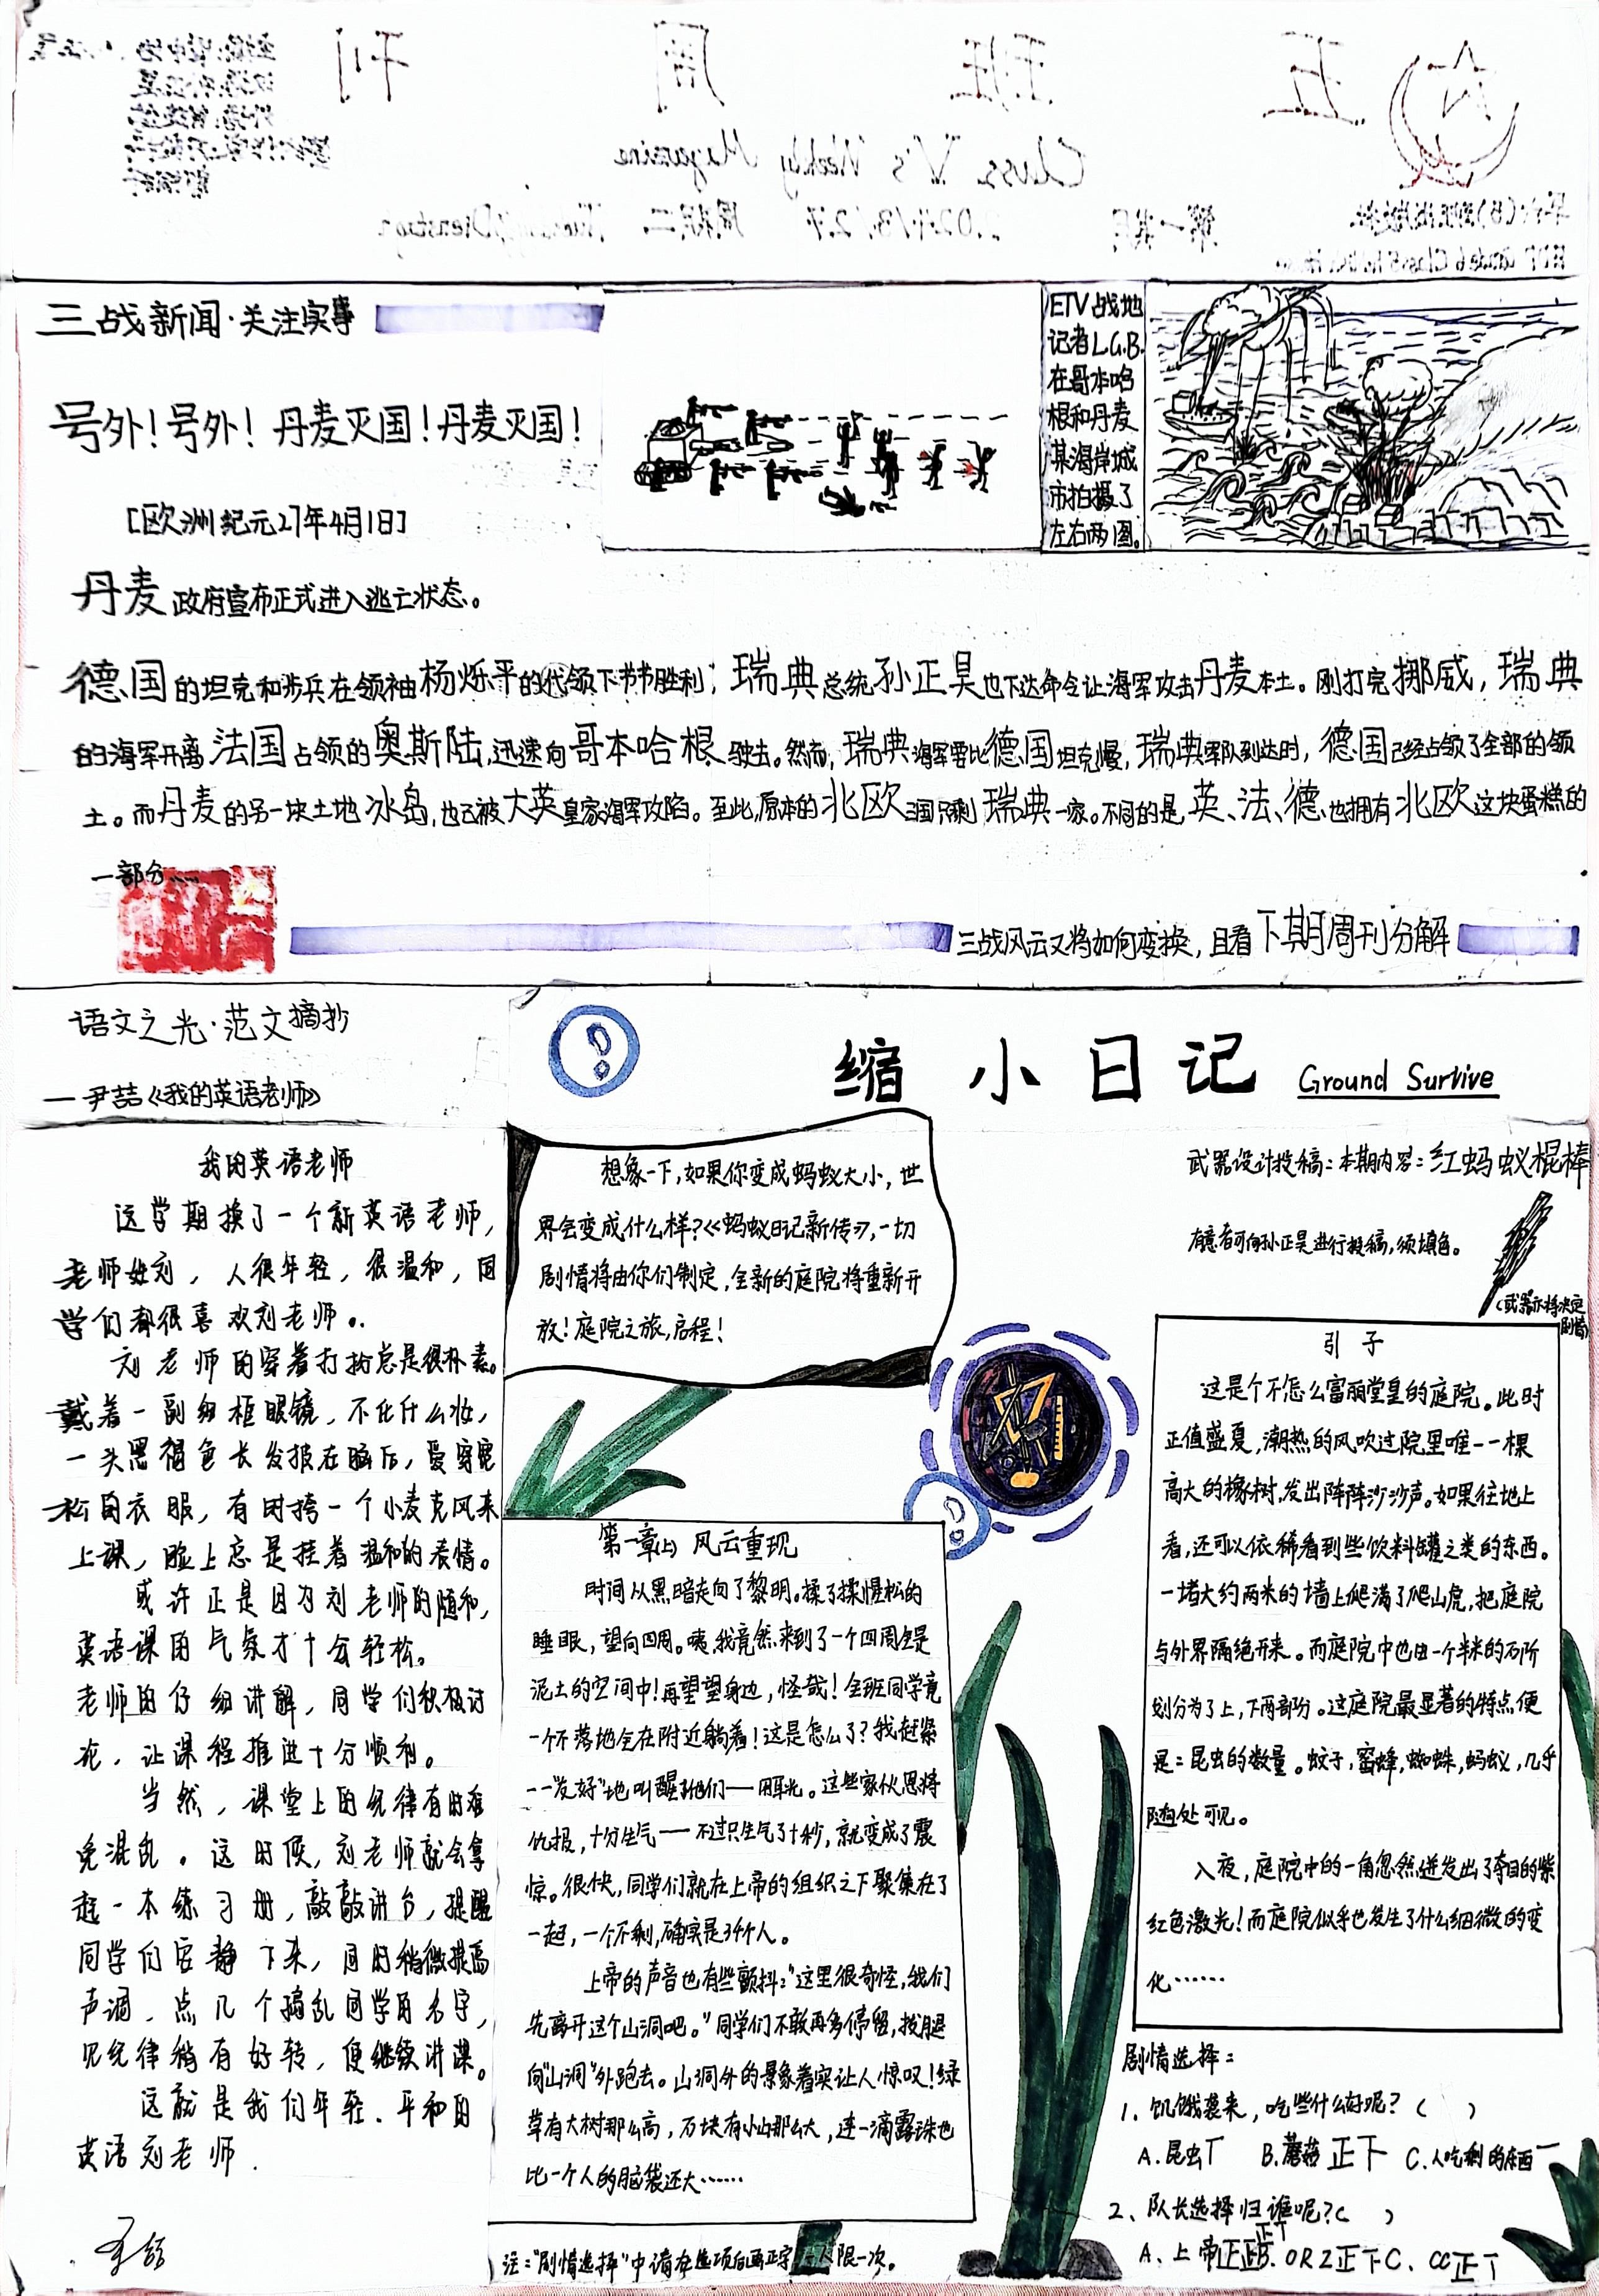 三战新闻·关注实事
号外！号外！丹麦灭国！丹麦灭国！
[欧洲纪元27年4月1日]
ETV战地
记者L.G.B.
在哥本哈
根和丹麦
某海岸城
市拍摄了
左右两图。
丹麦政府宣布正式进入逃亡状态。
德国的坦克和步兵在领袖杨烁平的代领下节节胜利；瑞典总统孙正昊也下达命令让海军攻击丹麦本土。刚打完挪威，瑞典
的海军开离法国占领的奥斯陆，迅速向哥本哈根驶去。然而，瑞典海军要比德国坦克慢，瑞典军队到达时，德国已经占领了全部的领
土。而丹麦的另一块土地冰岛，也已被大英皇家海军攻陷。至此，原本的北欧三国只剩瑞典一家。不同的是，英、法、德也拥有北欧这块蛋糕的
一部分……
三战风云又将如何变换，且看下期周刊分解
语文之光·范文摘抄
—尹喆《我的英语老师》
我的英语老师
这学期换了一个新英语老师，
老师姓刘，人很年轻，很温和，同
学们都很喜欢刘老师。
刘老师的穿着打扮总是很朴素。
戴着一副细框眼镜，不化什么妆，
一头黑褐色长发披在脑后，爱穿宽
松的衣服，有时挎一个小麦克风来
上课，脸上总是挂着温和的表情。
或许正是因为刘老师的随和，
英语课的气氛才十分轻松。
老师的仔细讲解，同学们积极讨
论，让课程推进十分顺利。
当然，课堂上的纪律有时难
免混乱。这时候，刘老师就会拿
起一本练习册，敲敲讲台，提醒
同学们安静下来，同时稍微提高
声调，点几个捣乱同学的名字，
见纪律稍有好转，便继续讲课。
这就是我们年轻、平和的
英语刘老师.
缩小日记 Ground Survive
想象一下，如果你变成蚂蚁大小，世
界会变成什么样？《蚂蚁日记新传》，一切
剧情将由你们制定，全新的庭院将重新开
放！庭院之旅，启程！
武器设计投稿：本期内容：红蚂蚁棍棒
有意者可向孙正昊进行投稿，须填色。
（武器亦将决定
剧情）
引子
这是个不怎么富丽堂皇的庭院。此时
正值盛夏，潮热的风吹过院里唯一一棵
高大的橡树，发出阵阵沙沙声。如果往地上
看，还可以依稀看到些饮料罐之类的东西。
一堵大约两米的墙上爬满了爬山虎，把庭院
与外界隔绝开来。而庭院中也由一个半米的石阶
划分为了上，下两部分。这庭院最显著的特点便
是：昆虫的数量。蚊子，蜜蜂，蜘蛛，蚂蚁，几乎
随处可见。
入夜，庭院中的一角忽然迸发出了夺目的紫
红色激光！而庭院似乎也发生了什么细微的变
化……
第一章(上) 风云重现
时间从黑暗走向了黎明。揉了揉惺松的
睡眼，望向四周。咦，我竟然来到了一个四周全是
泥土的空间中！再望望身边，怪哉！全班同学竟
一个不落地全在附近躺着！这是怎么了？我赶紧
——"友好"地叫醒了他们——用耳光。这些家伙恩将
仇报，十分生气——不过只生气了十秒，就变成了震
惊。很快，同学们就在上帝的组织之下聚集在了
一起，一个不剩，确实是34个人。
上帝的声音也有些颤抖："这里很奇怪，我们
先离开这个山洞吧。"同学们不敢再多停留，拔腿
向"山洞"外跑去。山洞外的景象着实让人惊叹！绿
草有大树那么高，石块有小山那么大，连一滴露珠也
比一个人的脑袋还大……
剧情选择：
1、饥饿袭来，吃些什么好呢？（ ）
A.昆虫 B.蘑菇 正 C.人吃剩的东西 一
2、队长选择归谁呢？（ ）
A.上帝正正 B.ORZ正 C.CC正
注："剧情选择"中请在选项后画正字，一人限一次。